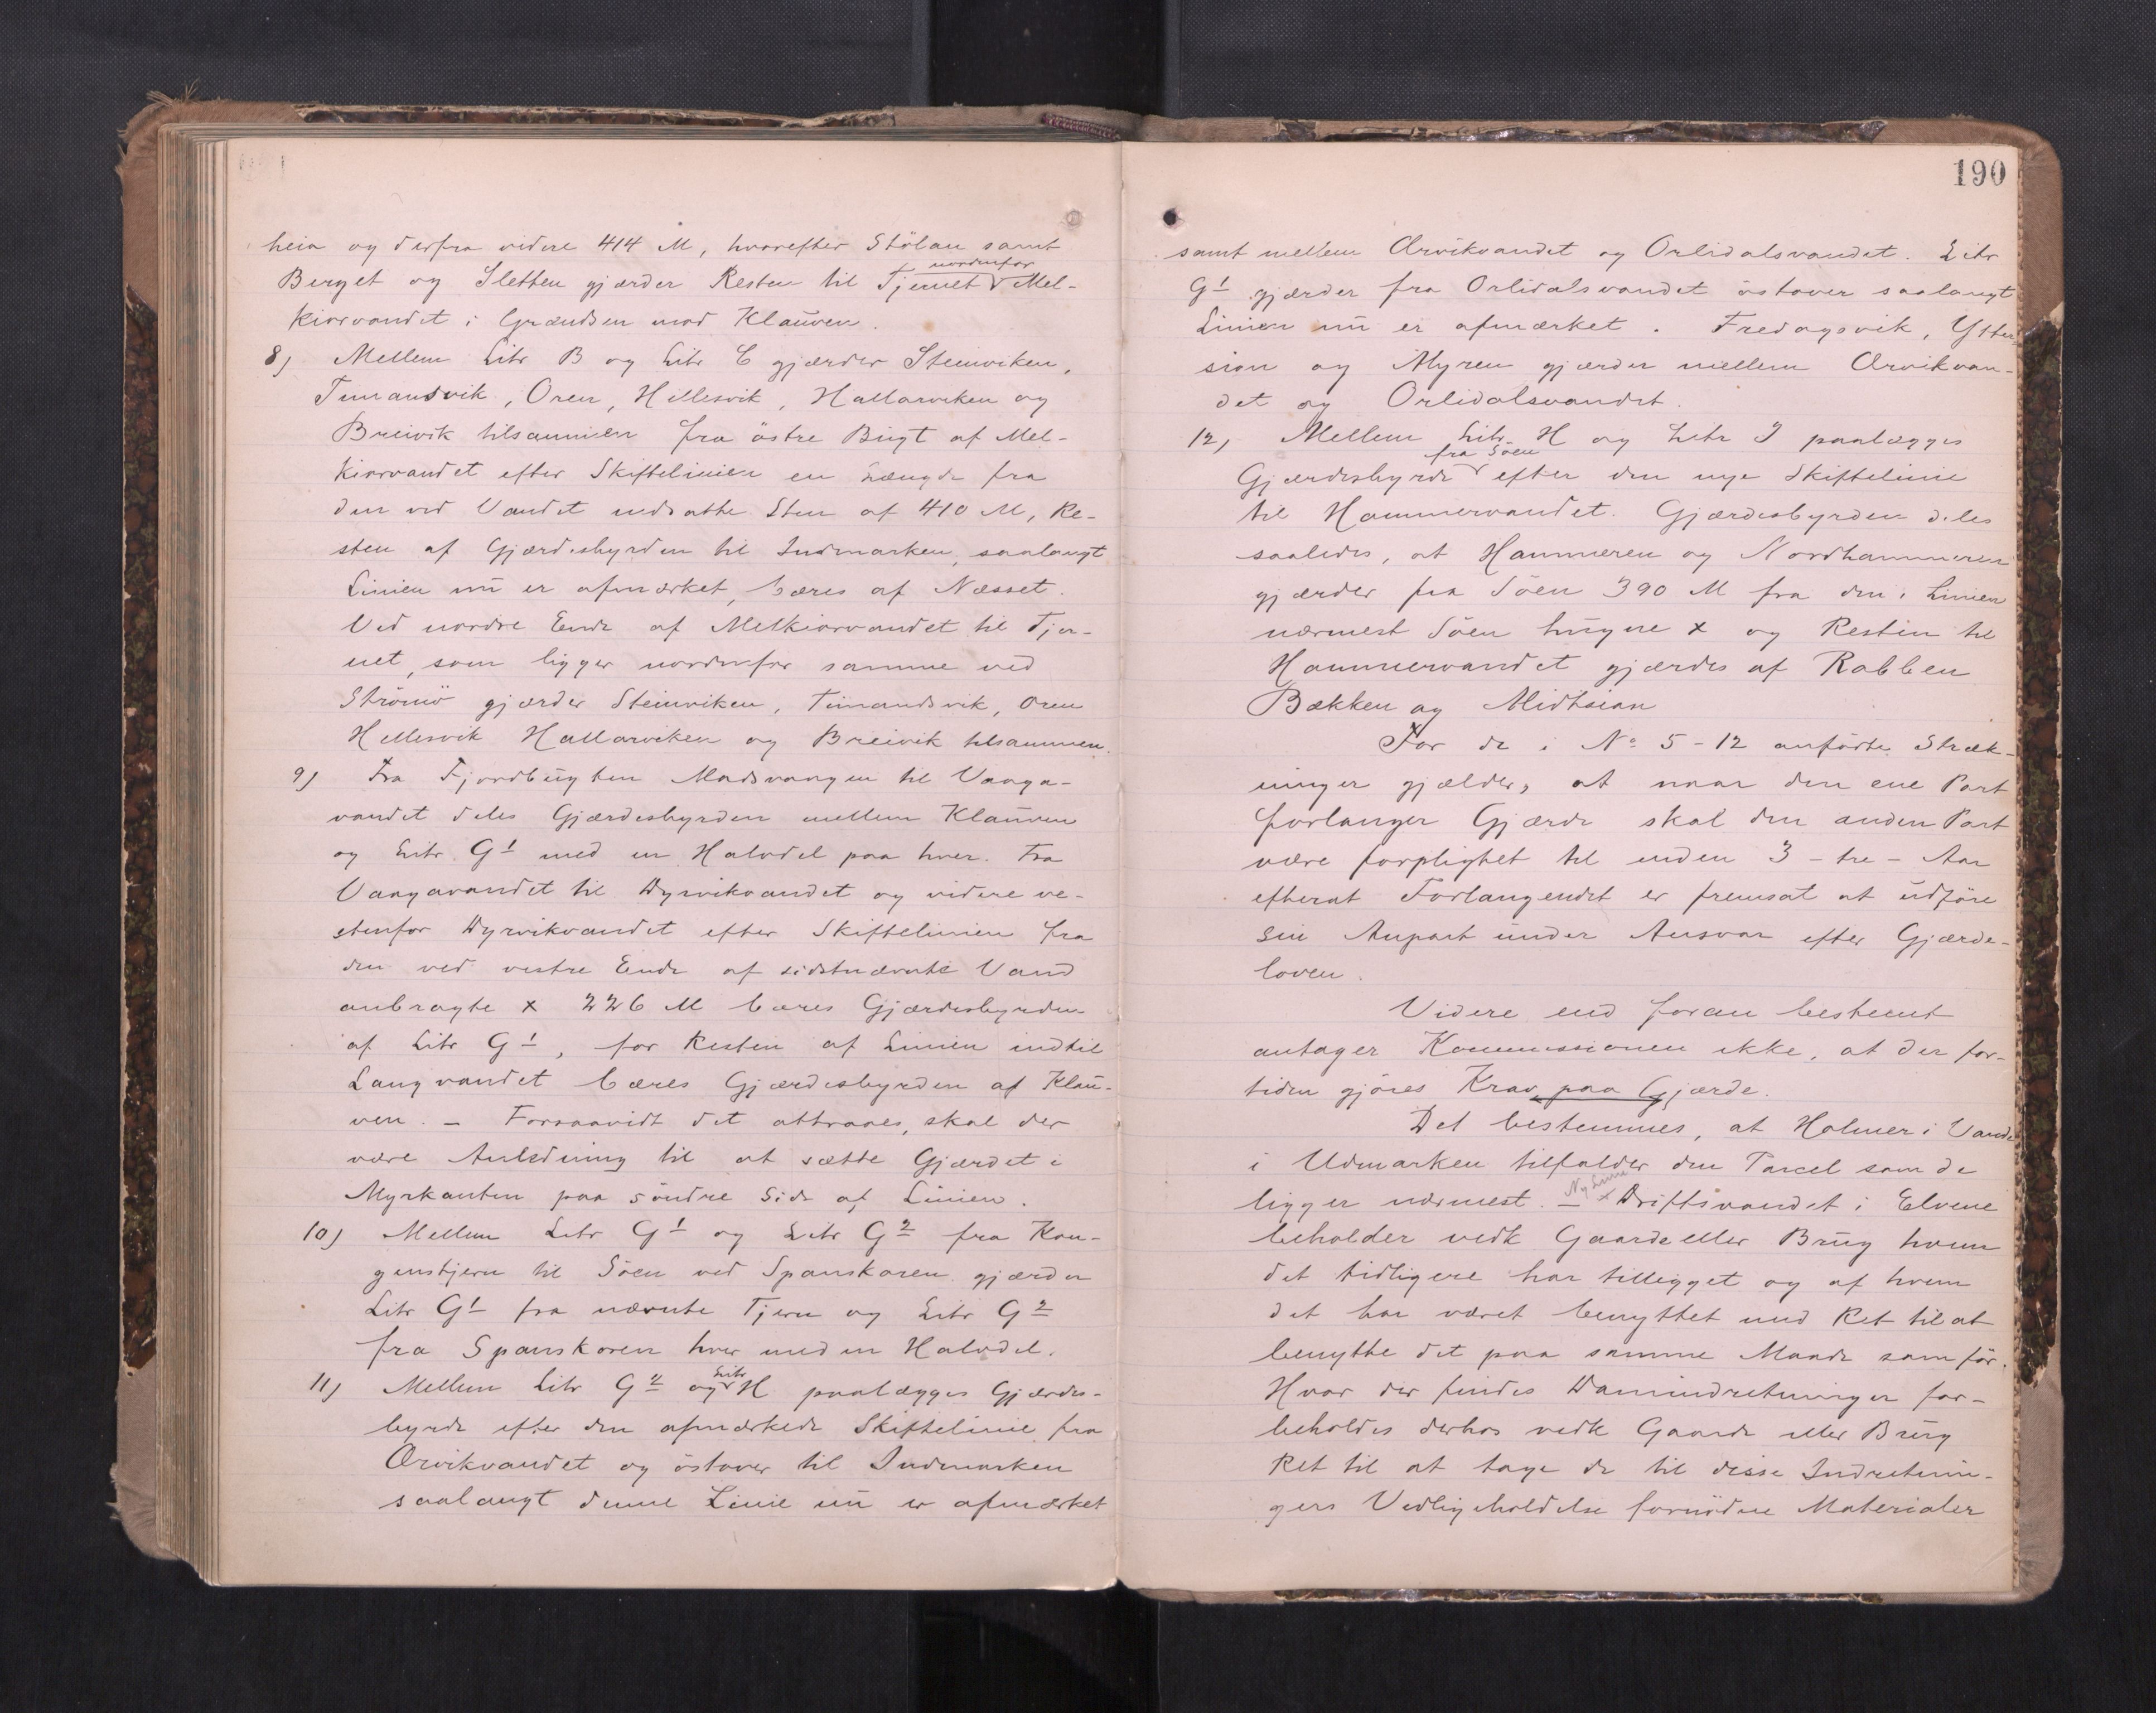 heia og derfra videre 414 M, hvorefter Stölan samt
Berget og Sletten gjærder Resten til Tjernet nordenfor Mel-
kiørvandet i Grændsen mod Klauven.
8) Mellem Litr B og Litr C gjærder Steinviken,
Timansvik, Oren, Hellesvik, Hallarviken og
Breivik tilsammen fra östre Bugt af Mel-
kiørvandet efter Skiftelinien en Længde fra
den ved Vandet nedsatte Sten af 410 M, Re-
sten af Gjærdesbyrden til Indmarken, saalangt
Linien nu er afmærket, bæres af Næsset.
Ved nordre Ende af Melkiørvandet til Tjer-
net, som ligger nordenfor samme ved
Strömö gjærder Steinviken, Timandsvik, Oren
Hellesvik Hallarviken og Breivik tilsammen.
9) Fra Fjordbugten Madsvangen til Vaaga-
vandet deles Gjærdesbyrden mellem Klauven
og Litr. G1 med en Halvdel paa hver. Fra
Vaagavandet til Dyrvikvandet og videre ve-
stenfor Dyrvikvandet efter Skiftelinien fra
den ved vestre Ende af sidstnævnte Vand
anbragte x 226 M bæres Gjærdesbyrden
af Litr G1, for Resten af Linien indtil
Langvandet bæres Gjærdesbyrden af Klau-
ven. – Forsaavidt det attraaes, skal der
være Anledning til at sætte Gjærdet i
Myrkanten paa söndre Side af Linien.
10) Mellem Litr G1 og Litr G2 fra Kon-
genstjern til Söen ved Spanskoren gjærder
Litr G1 fra nævnte Tjern og Litr G2
fra Spanskoren hver med en Halvdel.
11) Mellem Litr G2 og Litr H paalægges Gjærdes-
byrde efter den afmærkede Skiftelinie fra
Ørvikvandet og östover til Indmarken
saalangt denne Linie nu er afmærket
190
samt mellem Ørvikvandet og Orlidalsvandet. Litr
G1 gjærder fra Orlidalsvandet östover saalangt
Linien nu er afmærket. Fredagsvik, Ytter-
sian og Myren gjærder mellem Ørvikvan-
det og Orlidalsvandet.
12) Mellem Litr H og Litr I paalægges
Gjærdesbyrde fra Söen efter den nye Skiftelinie
til Hammervandet. Gjærdesbyrden deles
saaledes, at Hammeren og Nordhammeren
gjærder fra Söen 390 M fra den i Linien
nærmest Söen hugne x og Resten til
Hammervandet gjærdes af Rabben
Bækken og Midtsian
For de i No 5-12 anförte Stræk-
ninger gjælder, at naar den ene Part
forlanger Gjærde skal den anden Part
være forpligtet til inden 3 - tre - Aar
efterat Forlangendet er fremsat at udföre
sin Anpart under Ansvar efter Gjærde-
loven.
Videre end foran bestemt
antager Kommissionen ikke, at der for-
tiden gjöres Krav paa Gjærde.
Det bestemmes, at Holmer i Vande
i Udmarken tilfalder den Parcel som de
ligger nærmest. – Ny Linie x Driftsvandet i Elvene
beholder vedk Gaarde eller Brug hvem
det tidligere har tilligget og af hvem
det har været benyttet med Ret til at
benytte det paa samme Maade som för.
Hvor der findes Damindretninger for-
beholdes derhos vedk Gaarde eller Brug
Ret til at tage de til disse Indretnin-
gers Vedligeholdelse fornödne Materialer